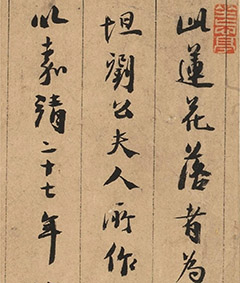 此蓮花落者為
坦劉公夫人所作
以嘉靖二十七年